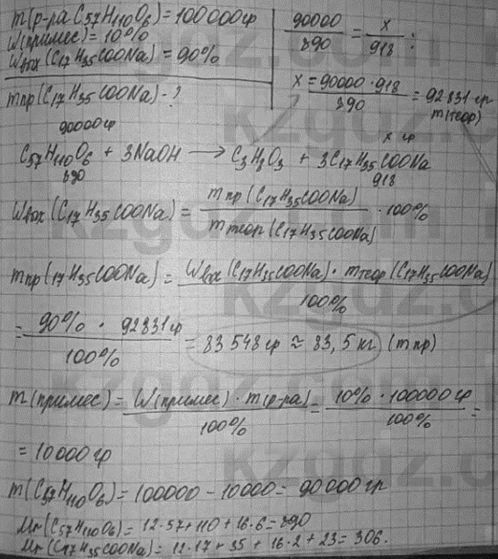 m(р-ра C57H110O6) = 100000гр
W(примес) = 10%
Wвых(C17H35COONa) = 90%
mпр(C17H35COONa) - ?
90000/890 = x/918 ;
x = 90000·918/890 = 92831 гр
mтеор)
90000гр x гр
C57H110O6 + 3NaOH → C3H8O3 + 3C17H35COONa
890 918
Wвых(C17H35COONa) = mпр(C17H35COONa)/mтеор(C17H35COONa) · 100%
mпр(17H35COONa) = Wвых(C17H35COONa) · mтеор(C17H35COONa)/100%
= 90% · 92831гр/100% = 83548гр ≈ 83,5 кг (mпр)
m(примес) = W(примес) · m(р-ра)/100% = 10% · 100000гр/100% =
= 10000гр
m(C57H110O6) = 100000 - 10000 = 90000гр
Mr(C57H110O6) = 12·57+110+16·6 = 890
Mr(C17H35COONa) = 12·17+35+16·2+23 = 306.
kzgdz.com